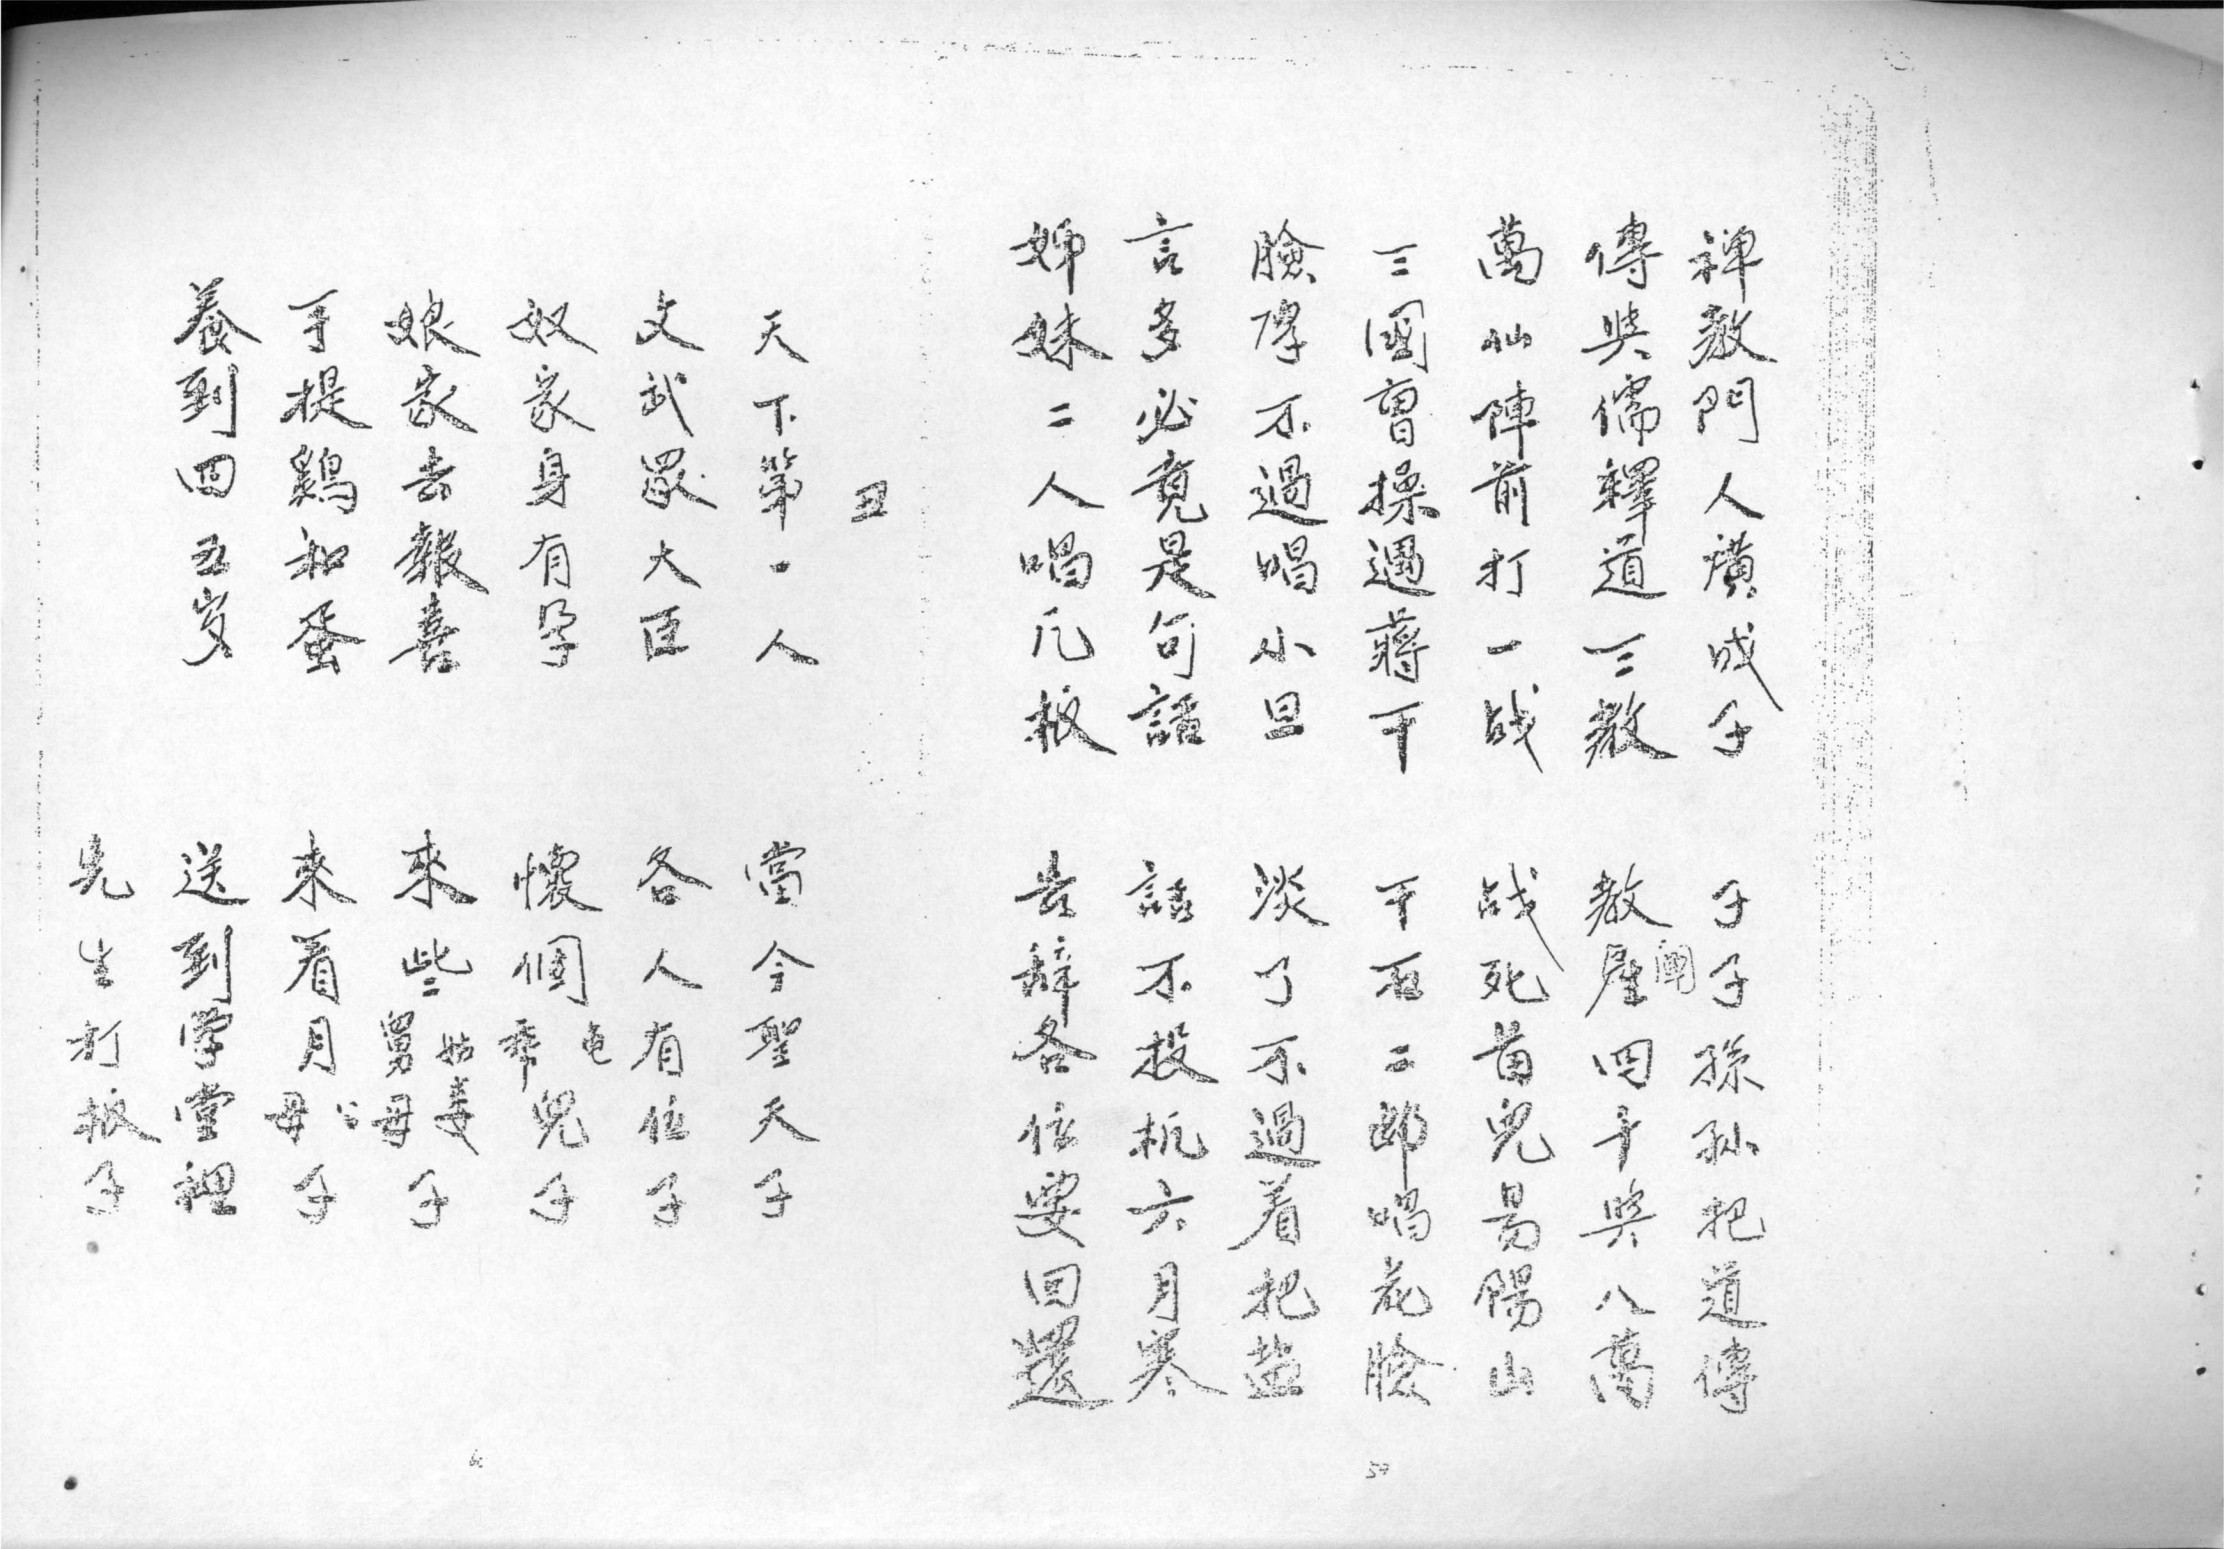 禅教門人廣成子　子子孫孫把道傳
傳與儒釋道三教　教產闡四千與八萬
萬仙陣前打一战　战死苗兒易陽山
三國曹操遇蔣干　干石二郎唱花臉
臉厚不過唱小旦　淡了不過着把盐
言多必竟是句話　話不投机六月寒
姊妹二人唱几板　告辞各位要回還
59
丑
天下第一人　當今聖天子
文武眾大臣　各人有位子
奴家身有孕　懷個乖龟兒子
娘家去報喜　來些姑妻舅母子
手提鷄和蛋　來着月公母子
養到四五岁　送到学堂裡
先生打板子